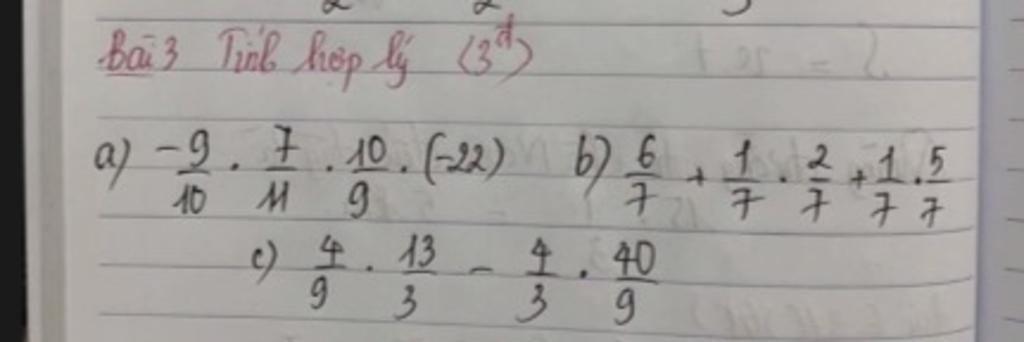 Bài 3 Tính hợp lý (3đ)
a) -9/10 . 7/11 . 10/9 . (-22) b) 6/7 + 1/7 . 2/7 + 1/7 . 5/7
c) 4/9 . 13/3 - 4/3 . 40/9